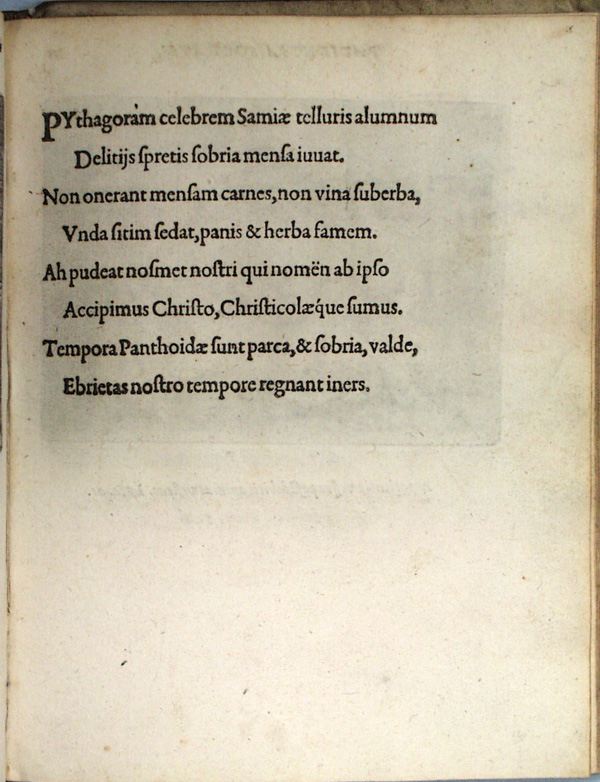 PYthagoràm celebrem Samiæ telluris alumnum
Delitijs ſpretis ſobria menſa iuuat.
Non onerant menſam carnes, non vina ſuberba,
Vnda ſitim ſedat, panis & herba famem.
Ah pudeat noſmet noſtri qui nomën ab ipſo
Accipimus Chriſto, Chriſticolæq́ue ſumus.
Tempora Panthoidæ ſunt parca, & ſobria, valde,
Ebrietas noſtro tempore regnant iners.